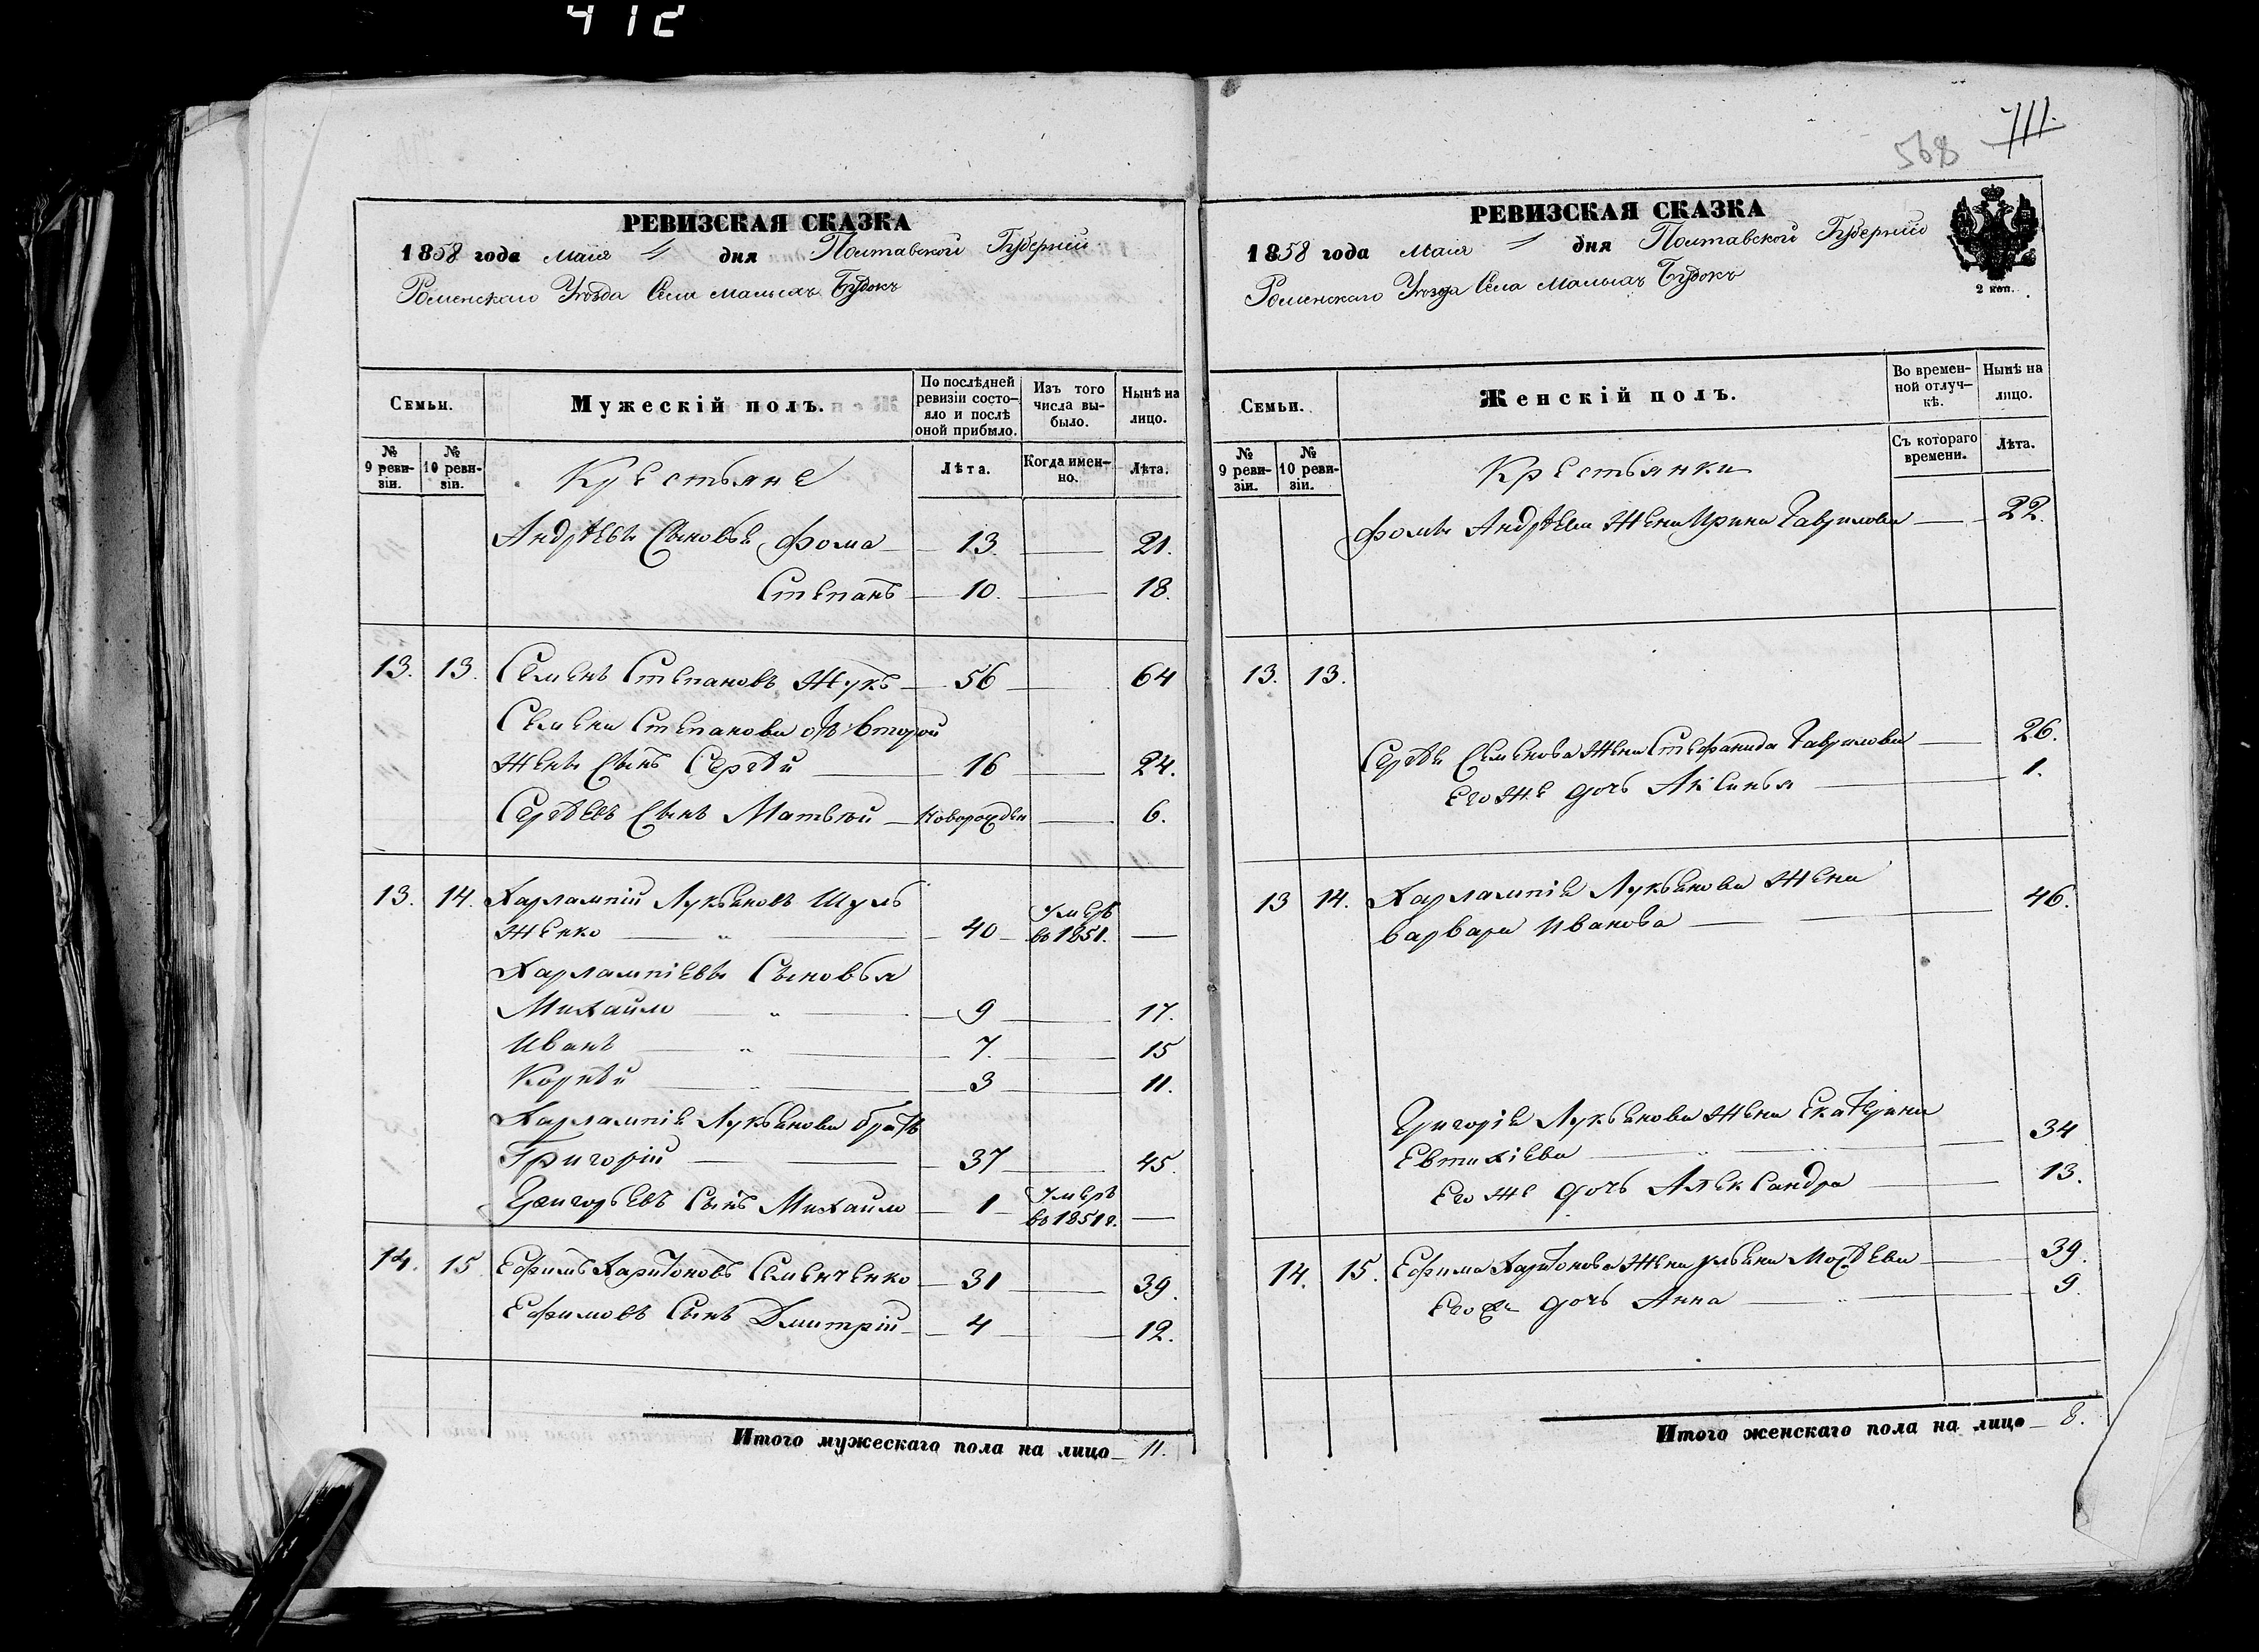 412
РЕВИЗСКАЯ СКАЗКА
1858 года Маія 1 дня Полтавской Губерніи
Роменскаго Уѣзда Села Малыхъ Будокъ
Семьи.
Мужескій полъ.
По послѣдней ревизіи состояло и послѣ оной прибыло.
Изъ того числа выбыло.
Нынѣ на лицо.
№ 9 ревизіи.
№ 10 ревизіи.
Крестьяне
Лѣта.
Когда именно.
Лѣта.
Андрѣевы Сыновья Фома 13. 21.
Степанъ 10. 18.
13. 13. Семенъ Степановъ Жукъ 56 64
Семена Степанова отъ второй
Жены Сынъ Сергѣй 16 24.
Сергѣевъ Сынъ Матвѣй новорожден 6.
13. 14. Харлампій Лукьяновъ Шуль
женко " 40 Умеръ въ 1851.
Харлампіевы Сыновья
Михайло " 9 17.
Иванъ " 7. 15
Корнѣй " 3 11.
Харлампія Лукьянова братъ
Григорій 37 45.
Григорьевъ Сынъ Михайло 1 Умеръ въ 1851 г.
14. 15 Ефимъ Харитоновъ Семенченко 31 39.
Ефимовъ Сынъ Дмитрій 4 12.
Итого мужескаго пола на лицо 11.
711.
568
РЕВИЗСКАЯ СКАЗКА
1858 года Маія 1 дня Полтавской Губерніи
Роменскаго Уѣзда Села Малыхъ Будокъ
2 коп.
Семьи.
Женскій полъ.
Во временной отлучкѣ.
Нынѣ на лицо.
№ 9 ревизіи.
№ 10 ревизіи.
Крестьянки
Съ котораго времени.
Лѣта.
Фомы Андрѣева Жена Ирина Гаврилова 22.
13. 13.
Сергѣя Семенова Жена Стефанида Гаврилова 26.
Его же дочь Аксинья 1.
13 14. Харлампія Лукьянова Жена
Варвара Иванова 46.
Григорія Лукьянова Жена Екатерина
Евтихіева 34
Его же дочь Александра 13.
14. 15. Ефима Харитонова Жена Ульяна 39.
Его же дочь Анна 9.
Итого женскаго пола на лицо 8.